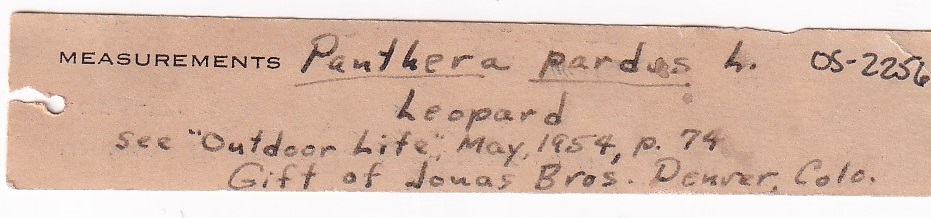 MEASUREMENTS Panthera pardus L. OS-2256
Leopard
see "Outdoor Life", May, 1954, p. 74
Gift of Jonas Bros. Denver, Colo.